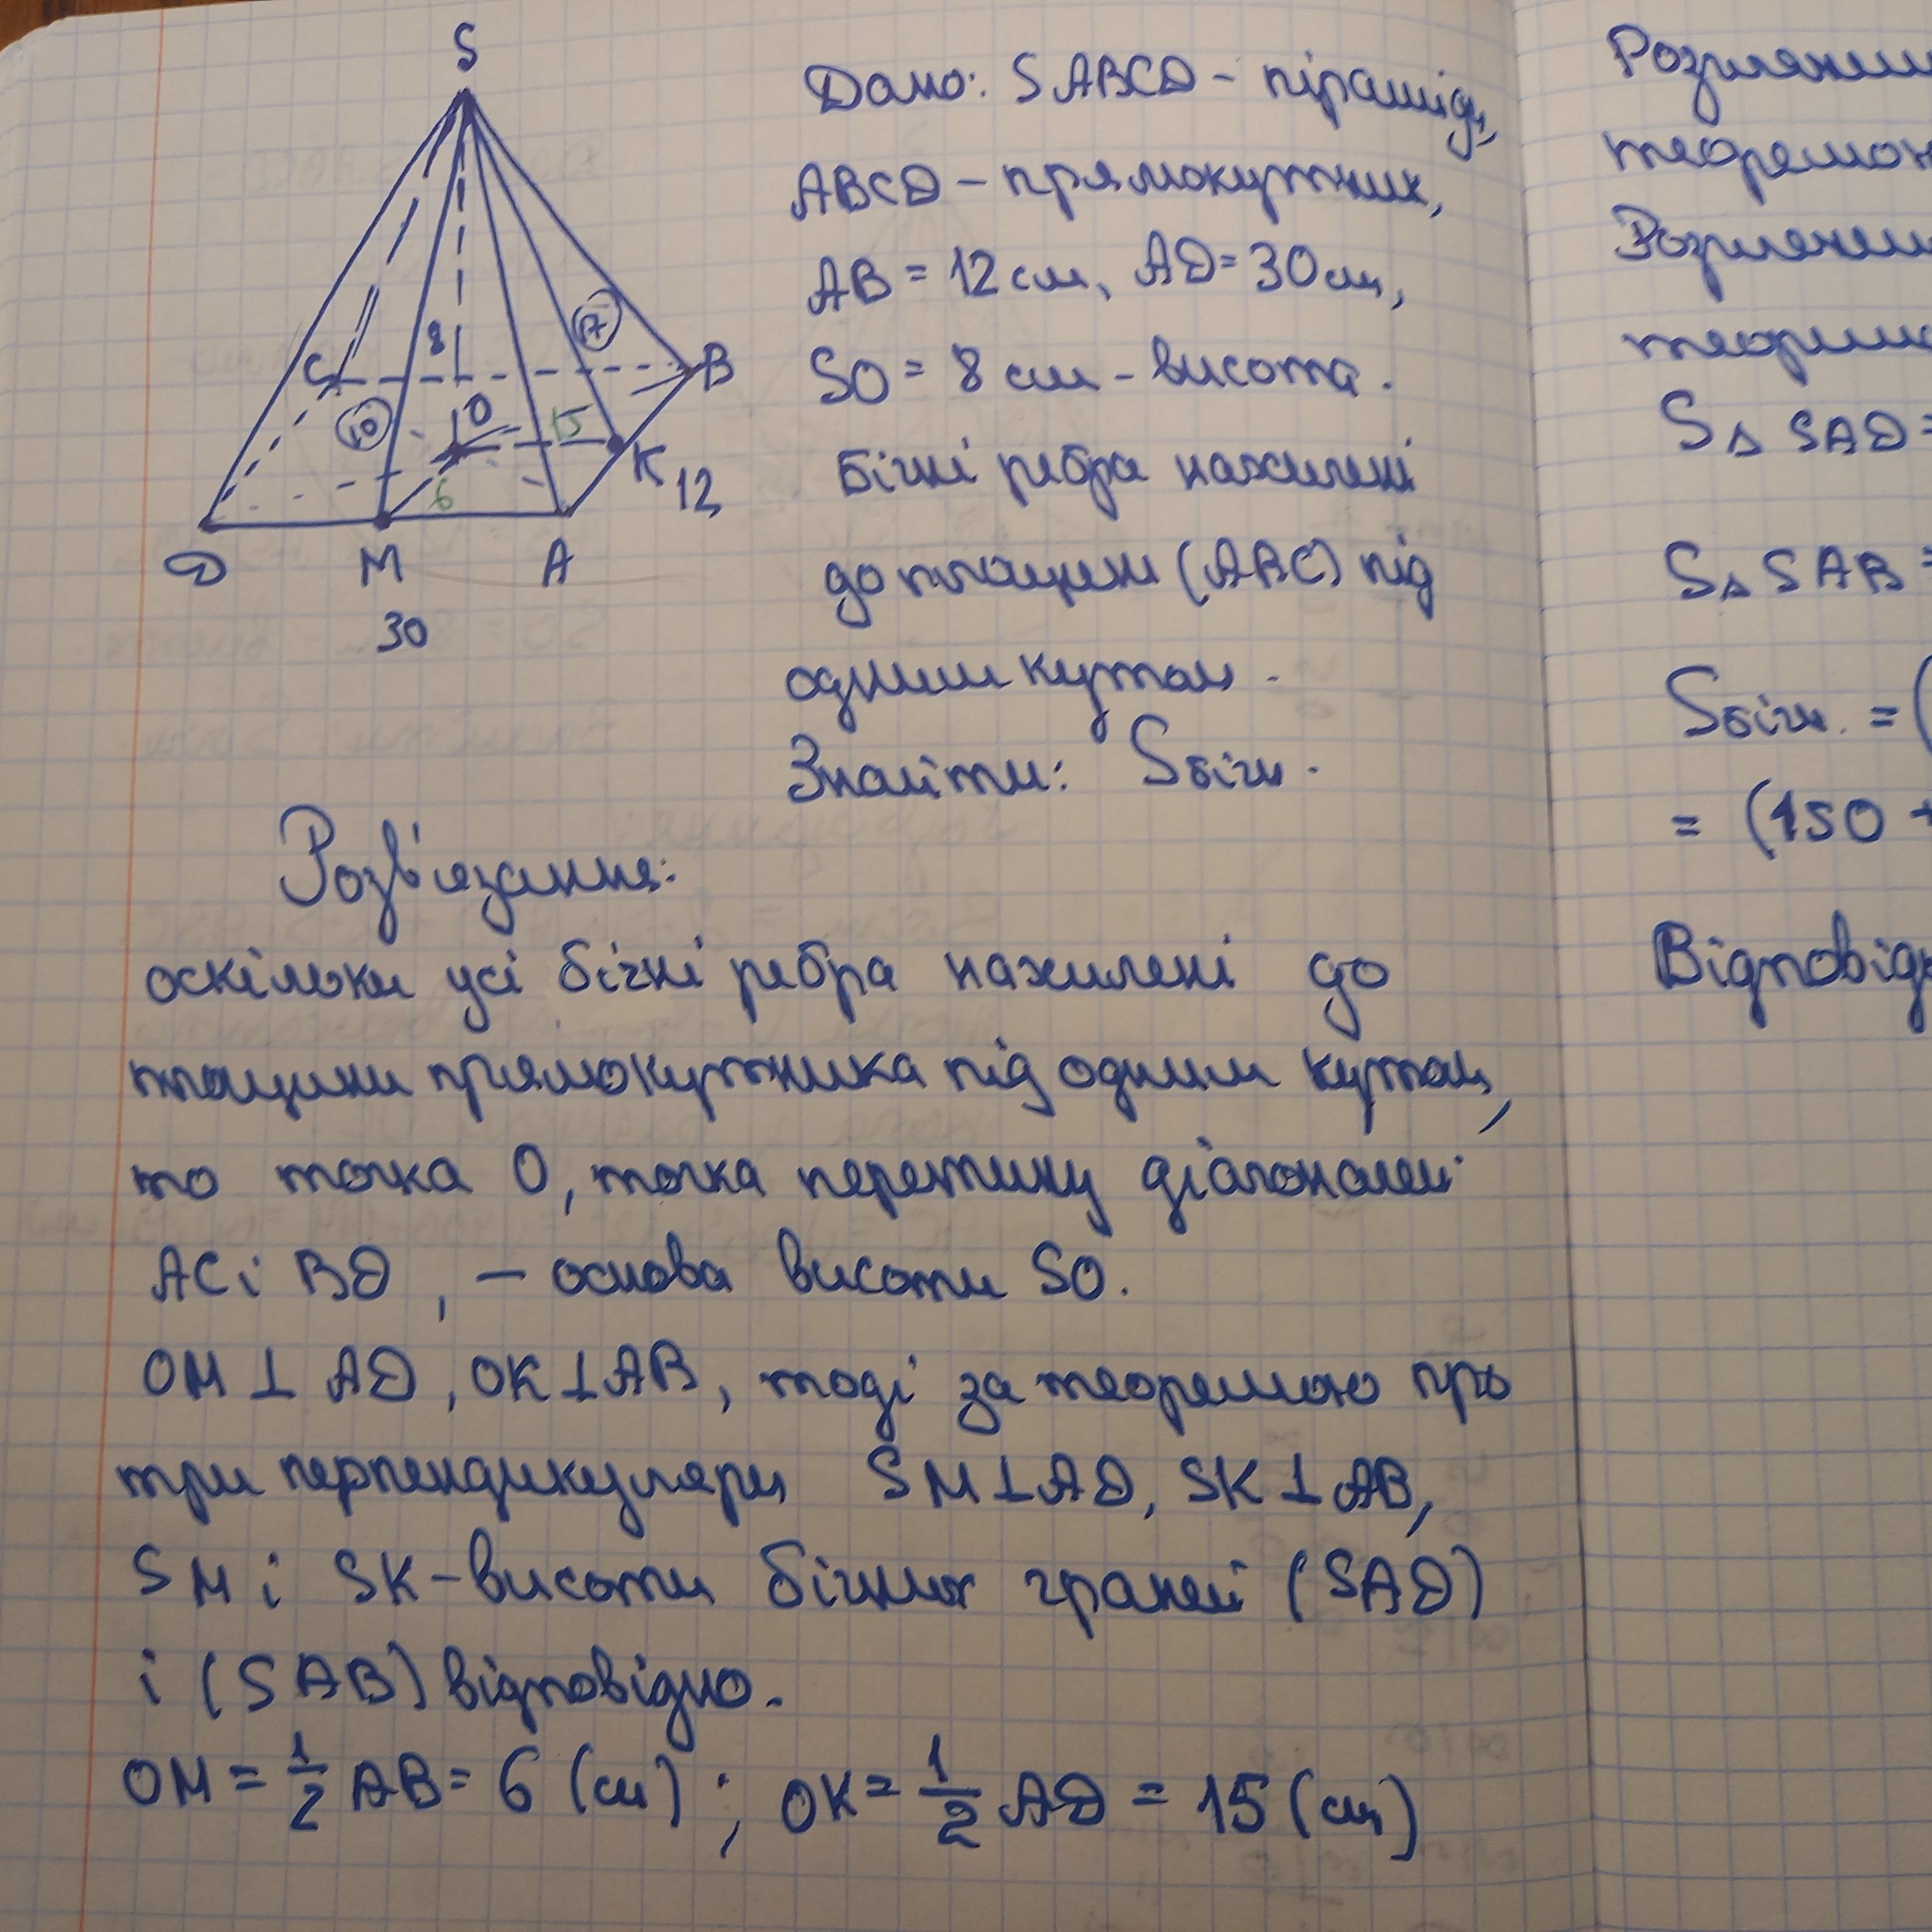 S
Дано: SABCD - піраміда,
ABCD - прямокутник,
AB = 12 см, AD = 30 см,
SO = 8 см - висота.
Бічні ребра нахилені
до площини (ABC) під
одним кутом.
Знайти: Sбічн.
C
B
8
O
10
17
15
6
K
12
D
M
A
30
Розв'язання:
оскільки усі бічні ребра нахилені до
площини прямокутника під одним кутом,
то точка O, точка перетину діагоналей
AC і BD, - основа висоти SO.
OM ⊥ AD, OK ⊥ AB, тоді за теоремою про
три перпендикуляри SM ⊥ AD, SK ⊥ AB,
SM і SK - висоти бічних граней (SAD)
і (SAB) відповідно.
OM = 1/2 AB = 6 (см); OK = 1/2 AD = 15 (см)
S△ SAD =
S△ SAB =
Sбічн. = (
= (150 +